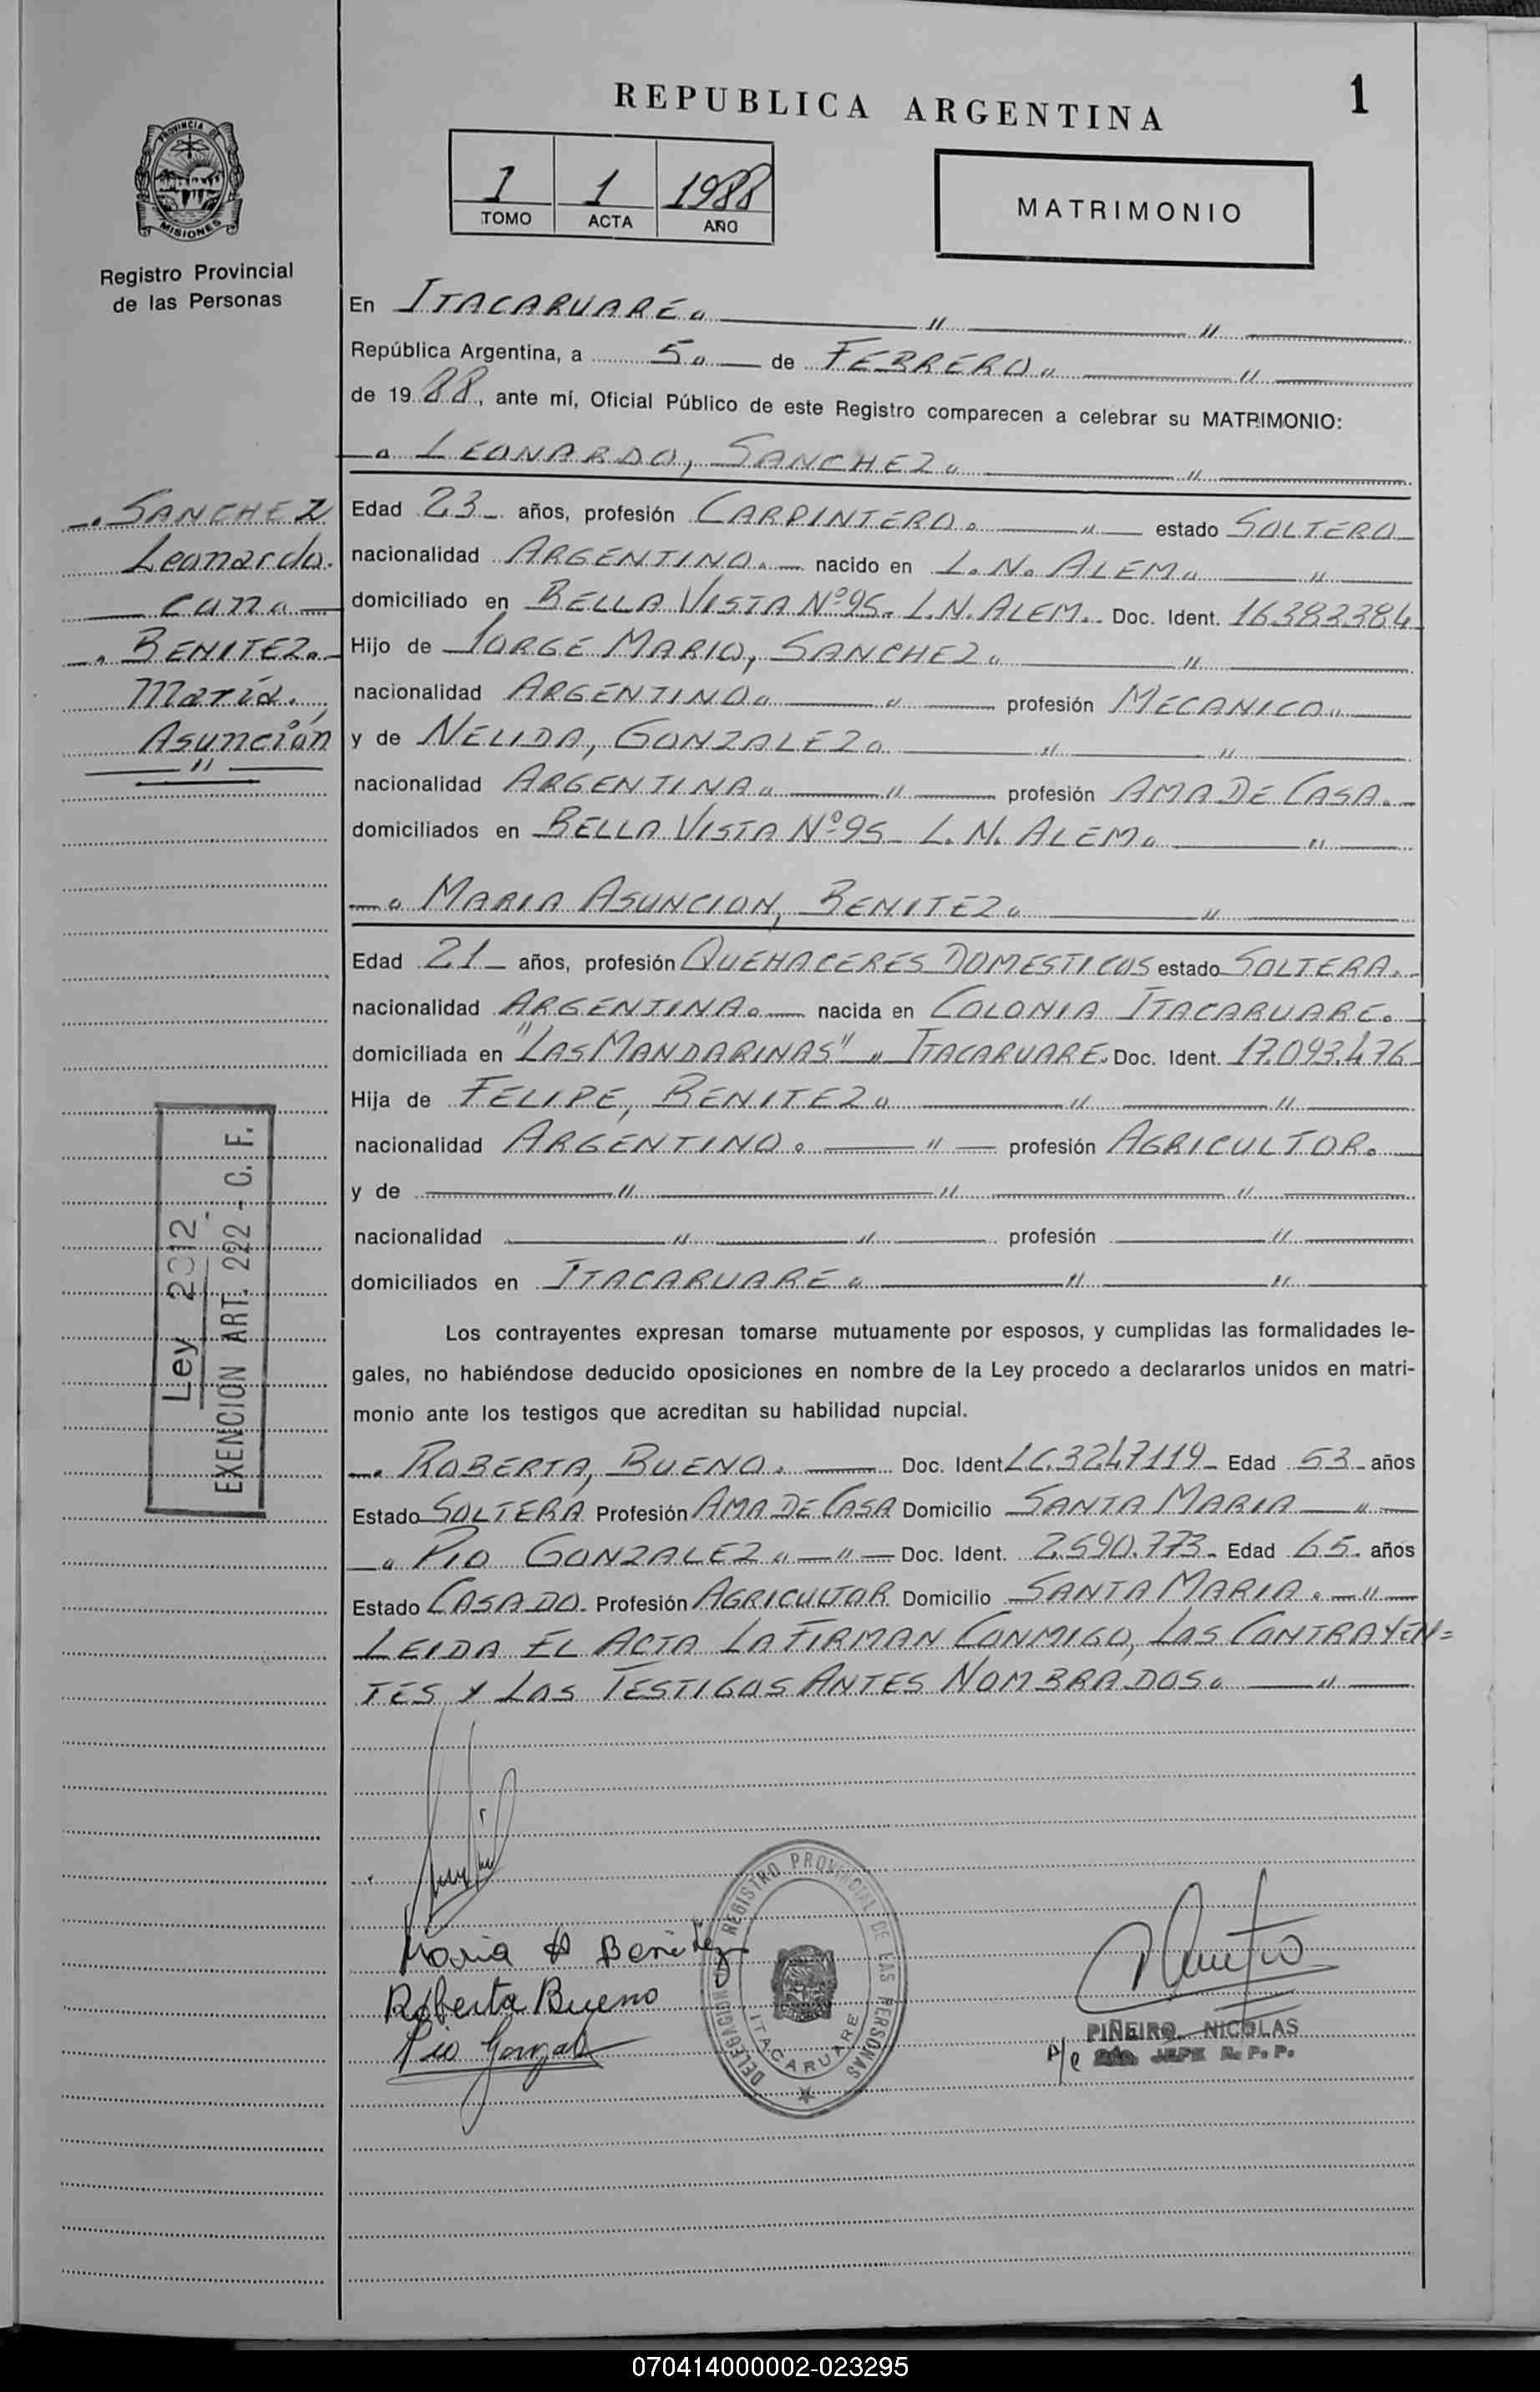 REPUBLICA ARGENTINA
1
PROVINCIA DE
MISIONES
Registro Provincial
de las Personas
1 1 1988
TOMO ACTA AÑO
MATRIMONIO
En ITACARUARE
República Argentina, a 5 de FEBRERO
de 1988, ante mí, Oficial Público de este Registro comparecen a celebrar su MATRIMONIO:
LEONARDO, SANCHEZ
SANCHEZ
Leonardo.
con
BENITEZ
María
Asunción
Edad 23 años, profesión CARPINTERO. estado SOLTERO
nacionalidad ARGENTINO. nacido en L. N. ALEM
domiciliado en BELLA VISTA Nº 95. L.N. ALEM. Doc. Ident. 16.382.384
Hijo de JORGE MARIO, SANCHEZ
nacionalidad ARGENTINO profesión MECANICO
y de NELIDA, GONZALEZ
nacionalidad ARGENTINA profesión AMA DE CASA.
domiciliados en BELLA VISTA Nº 95 L. N. ALEM
MARIA ASUNCION, BENITEZ
Edad 21 años, profesión QUEHACERES DOMESTICOS estado SOLTERA.
nacionalidad ARGENTINA. nacida en COLONIA ITACARUARE.
domiciliada en "LAS MANDARINAS" " ITACARUARE. Doc. Ident. 17.093.476
Hija de FELIPE, BENITEZ
nacionalidad ARGENTINO. profesión AGRICULTOR.
y de
nacionalidad profesión
domiciliados en ITACARUARE
Ley 2012
EXENCION ART. 222 - C. F.
Los contrayentes expresan tomarse mutuamente por esposos, y cumplidas las formalidades le-
gales, no habiéndose deducido oposiciones en nombre de la Ley procedo a declararlos unidos en matri-
monio ante los testigos que acreditan su habilidad nupcial.
ROBERTA, BUENO. Doc. Ident LC. 3247119 Edad 53 años
Estado SOLTERA Profesión AMA DE CASA Domicilio SANTA MARIA
PIO GONZALEZ Doc. Ident. 2.590.773 Edad 65. años
Estado CASADO. Profesión AGRICULTOR Domicilio SANTA MARIA.
LEIDA EL ACTA LA FIRMAN CONMIGO, LOS CONTRAYEN=
TES Y LOS TESTIGOS ANTES NOMBRADOS
Maria A Benitez
Roberta Bueno
Pio Gonzalez
DELEGACION REGISTRO PROVINCIAL DE LAS PERSONAS
ITACARUARE
PIÑEIRO NICOLAS
A/C JEFE R. P. P.
070414000002-023295